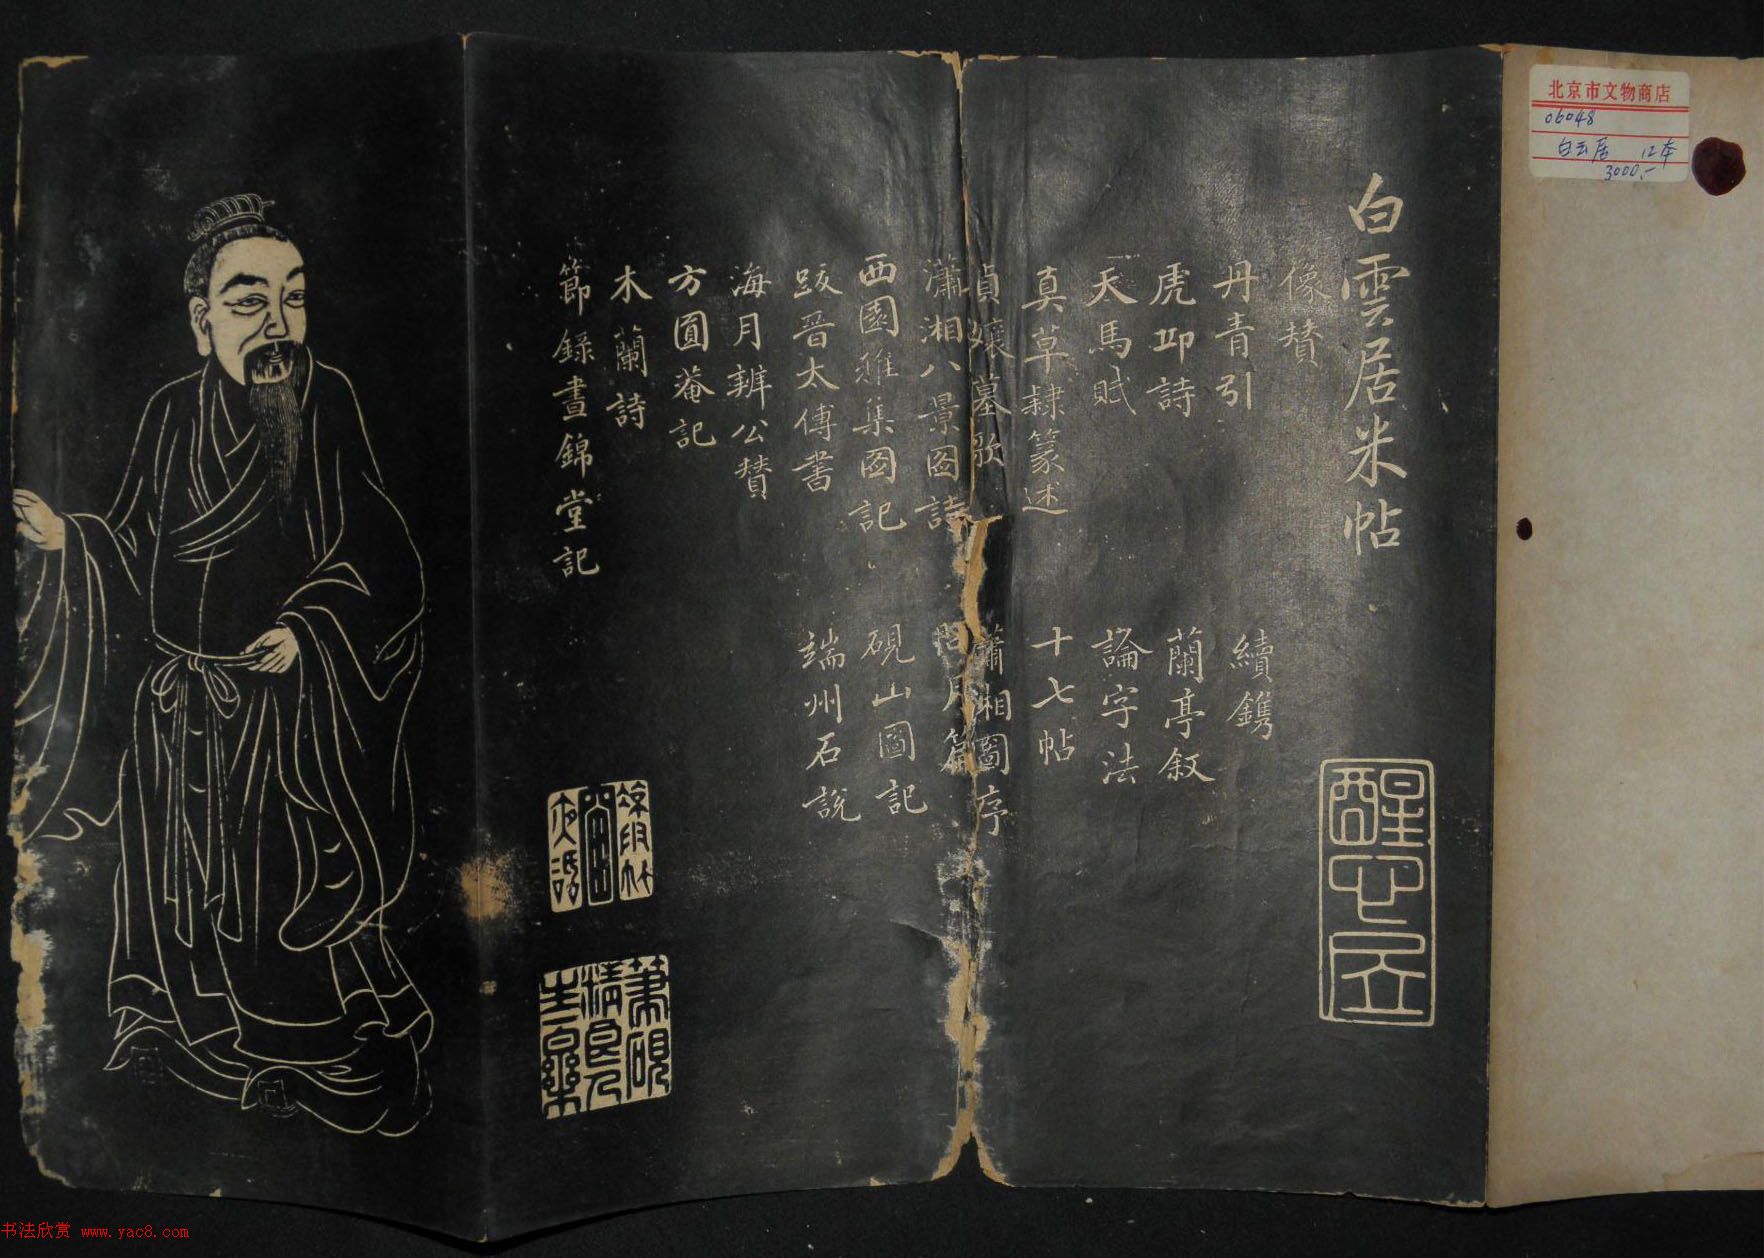 北京市文物商店
06048
白云居 12本
3000.-
白雲居米帖
像賛
丹青引
虎丘詩
天馬賦
真草隸篆述
貞孃墓歌
瀟湘八景圖詩
西園雅集圖記
跋晉太傅書
海月辨公賛
方圓菴記
木蘭詩
節錄晝錦堂記
續鐫
蘭亭敘
論字法
十七帖
瀟湘圖序
月篇
硯山圖記
端州石說
醒心居
筆硯精良人生樂
书法欣赏 www.yac8.com